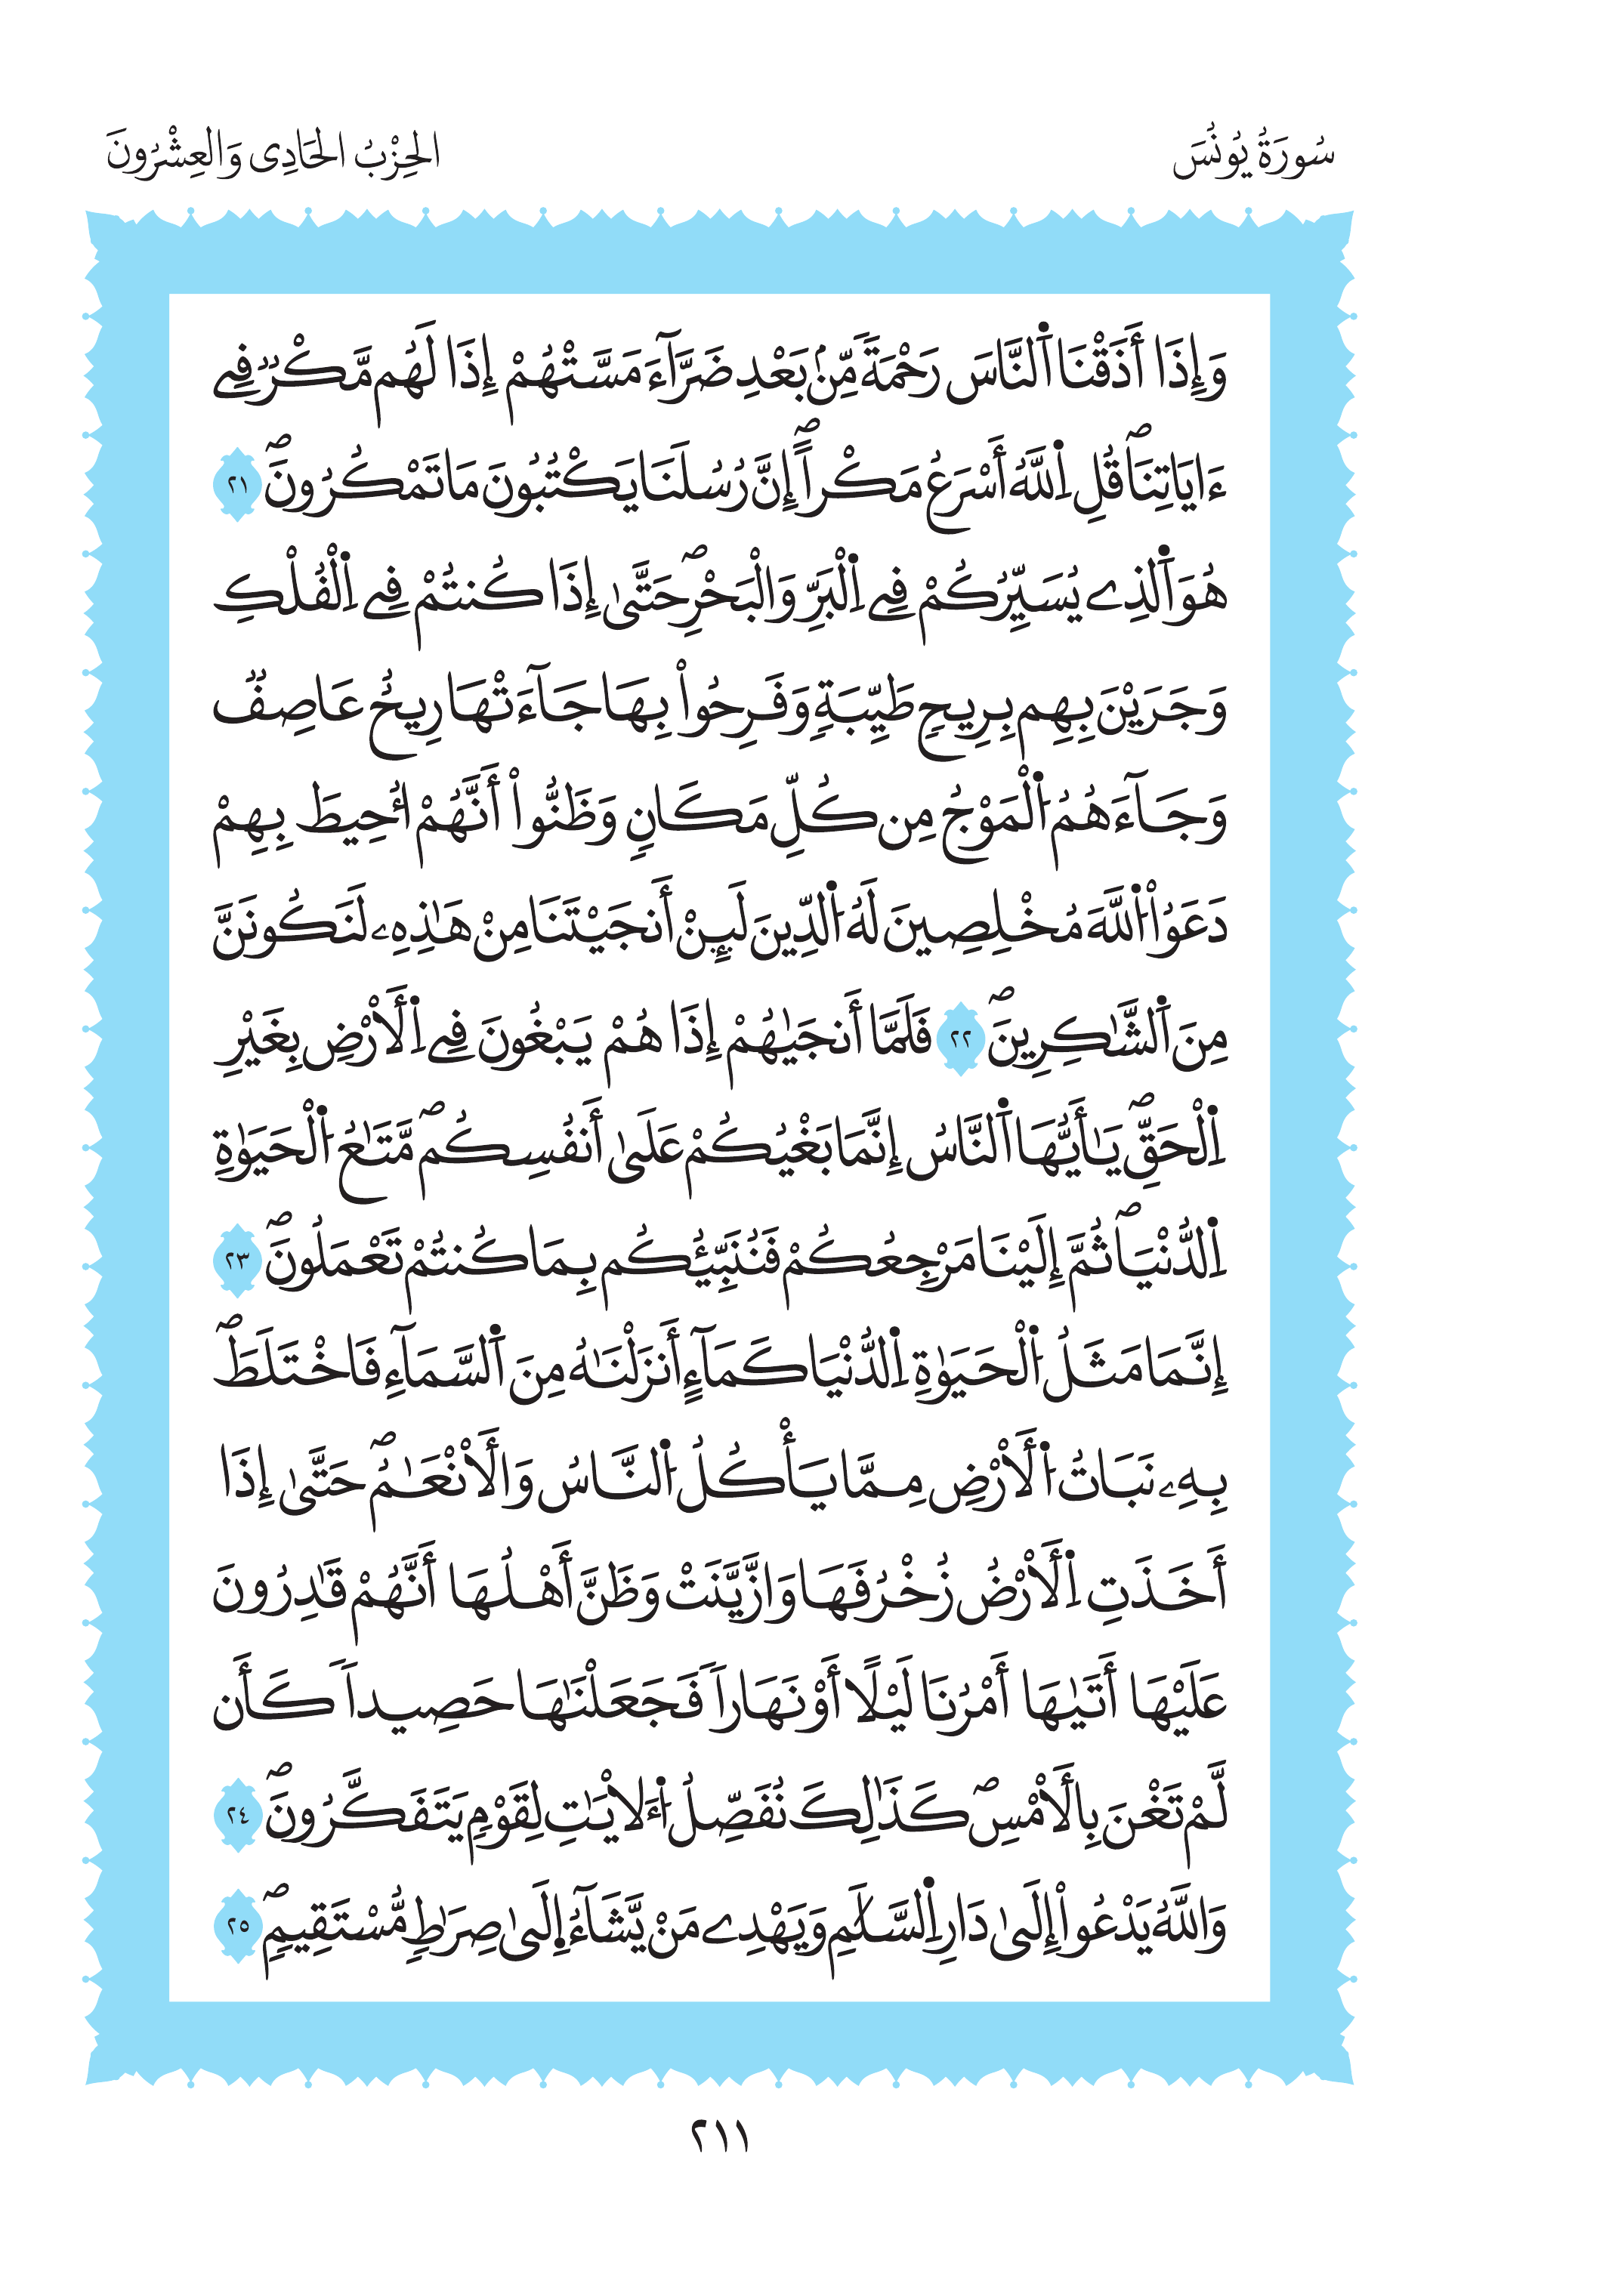 سُورَةُ يُونُسَ
الحِزْبُ الحَادِى وَالعِشْرُونَ
وَإِذَا أَذَقْنَا اَ۬لنَّاسَ رَحْمَةٗ مِّنۢ بَعْدِ ضَرَّآءَ مَسَّتْهُمْ إِذَا لَهُم مَّكْرٞ فِے
ءَايَاتِنَاۖ قُلِ اِ۬للَّهُ أَسْرَعُ مَكْراًۖ إِنَّ رُسُلَنَا يَكْتُبُونَ مَا تَمْكُرُونَۖ ٢١
هُوَ اَ۬لذِے يُسَيِّرُكُمْ فِے اِ۬لْبَرِّ وَالْبَحْرِۖ حَتَّىٰ إِذَا كُنتُمْ فِے اِ۬لْفُلْكِ
وَجَرَيْنَ بِهِم بِرِيحٖ طَيِّبَةٖ وَفَرِحُواْ بِهَا جَآءَتْهَا رِيحٌ عَاصِفٞ
وَجَآءَهُمُ اُ۬لْمَوْجُ مِن كُلِّ مَكَانٖ وَظَنُّواْ أَنَّهُمْ أُحِيطَ بِهِمْ
دَعَوُاْ اُ۬للَّهَ مُخْلِصِينَ لَهُ اُ۬لدِّينَ لَئِنْ أَنجَيْتَنَا مِنْ هَٰذِهِۦ لَنَكُونَنَّ
مِنَ اَ۬لشَّٰكِرِينَۖ ٢٢ فَلَمَّا أَنجَيٰهُمْ إِذَا هُمْ يَبْغُونَ فِے اِ۬لْأَرْضِ بِغَيْرِ
اِ۬لْحَقِّۖ يَٰأَيُّهَا اَ۬لنَّاسُ إِنَّمَا بَغْيُكُمْ عَلَىٰ أَنفُسِكُمۖ مَّتَٰعُ اُ۬لْحَيَوٰةِ
اِ۬لدُّنْيَاۖ ثُمَّ إِلَيْنَا مَرْجِعُكُمْ فَنُنَبِّئُكُم بِمَا كُنتُمْ تَعْمَلُونَۖ ٢٣
إِنَّمَا مَثَلُ اُ۬لْحَيَوٰةِ اِ۬لدُّنْيَا كَمَآءٍ أَنزَلْنَٰهُ مِنَ اَ۬لسَّمَآءِ فَاخْتَلَطَۖ
بِهِۦ نَبَاتُ اُ۬لْأَرْضِ مِمَّا يَأْكُلُ اُ۬لنَّاسُ وَالْأَنْعَٰمُۖ حَتَّىٰ إِذَا
أَخَذَتِ اِ۬لْأَرْضُ زُخْرُفَهَا وَازَّيَّنَتْ وَظَنَّ أَهْلُهَا أَنَّهُمْ قَٰدِرُونَ
عَلَيْهَا أَتَيٰهَا أَمْرُنَا لَيْلًا أَوْ نَهَاراٗ فَجَعَلْنَٰهَا حَصِيداٗ كَأَن
لَّمْ تَغْنَ بِالْأَمْسِۖ كَذَٰلِكَ نُفَصِّلُ اُ۬لْأٓيَٰتِ لِقَوْمٖ يَتَفَكَّرُونَۖ ٢٤
وَاللَّهُ يَدْعُواْ إِلَىٰ دَارِ اِ۬لسَّلَٰمِ وَيَهْدِے مَنْ يَّشَآءُ اِ۪لَىٰ صِرَٰطٖ مُّسْتَقِيمٖۖ ٢٥
٢١١